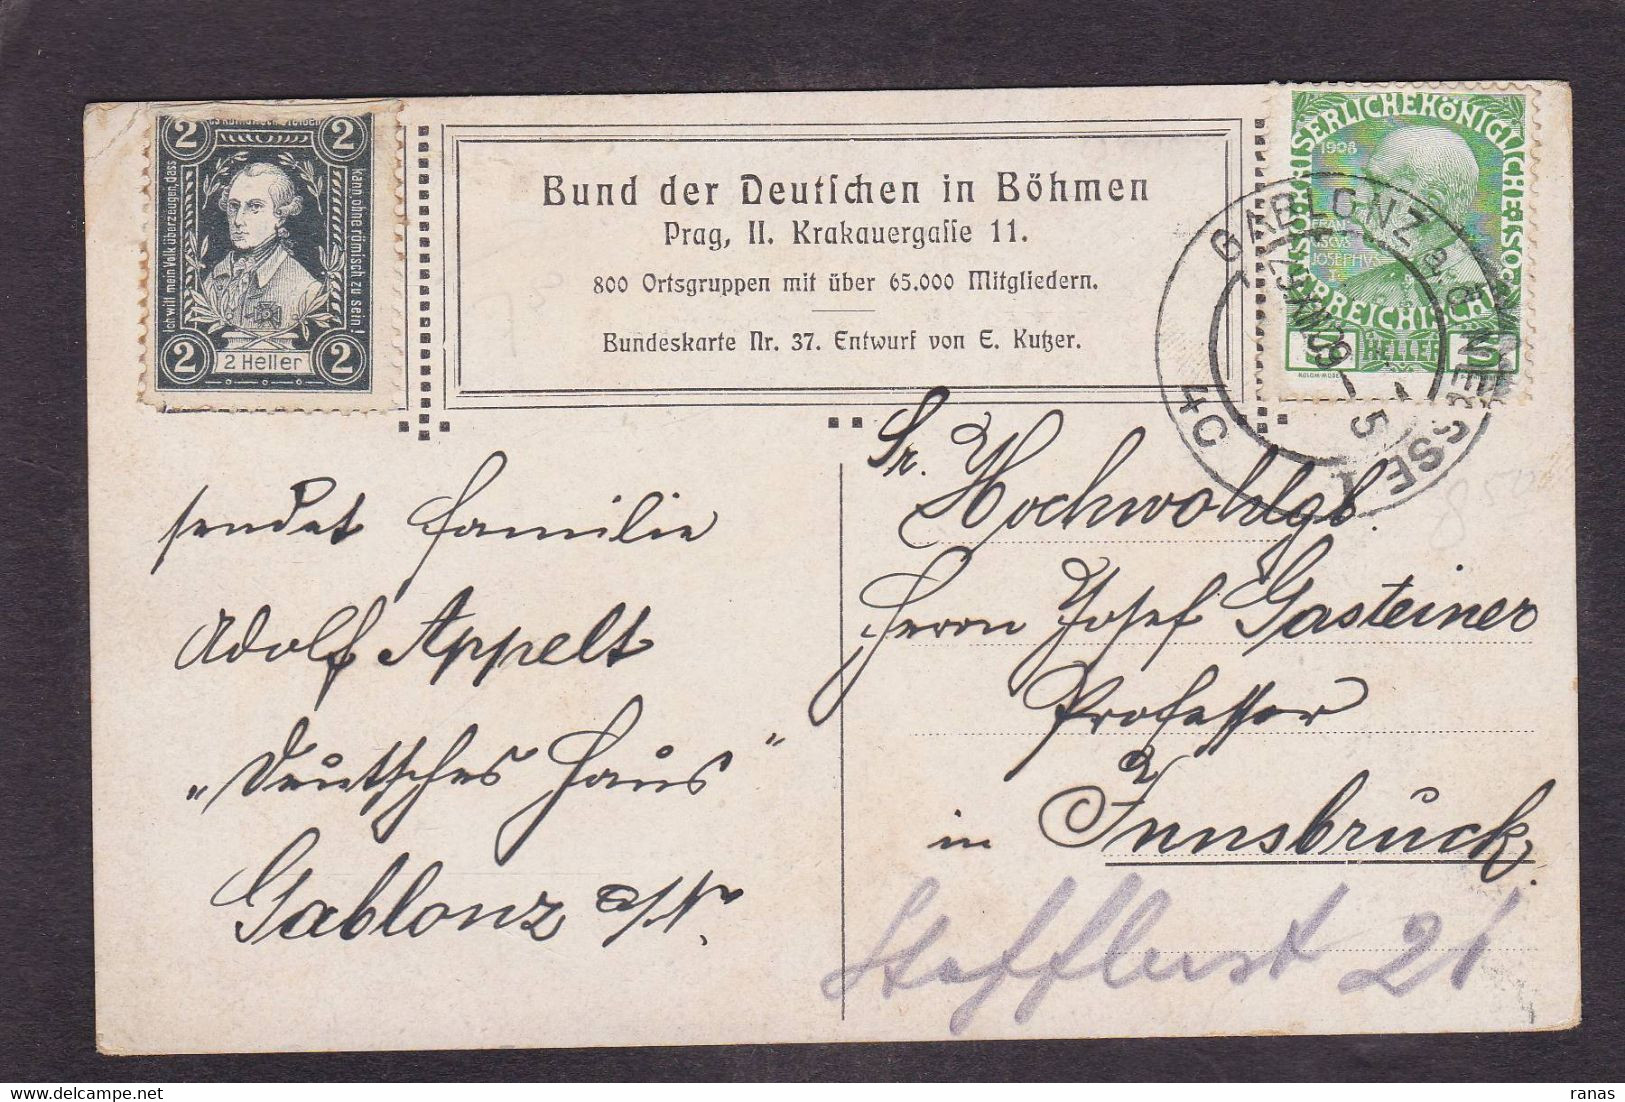 2 2
Ich will mein Volk überzeugen, dass
kann ohne römisch zu sein!
2 2 Heller 2
Bund der Deutschen in Böhmen
Prag, II. Krakauergasse 11.
800 Ortsgruppen mit über 65.000 Mitgliedern.
Bundeskarte Nr. 37. Entwurf von E. Kutzer.
KAISERLICHE KÖNIGLICHE
ÖSTERREICHISCHE
1908
JOSEPHUS
5 HELLER 5
GABLONZ a. d. NEISSE
4C
sendet Familie
Adolf Appelt
„Deutsches Haus“
Gablonz a/N.
Sr. Hochwohlgb.
Herrn Josef Gasteiner
Professor
in Innsbruck.
21
ranas